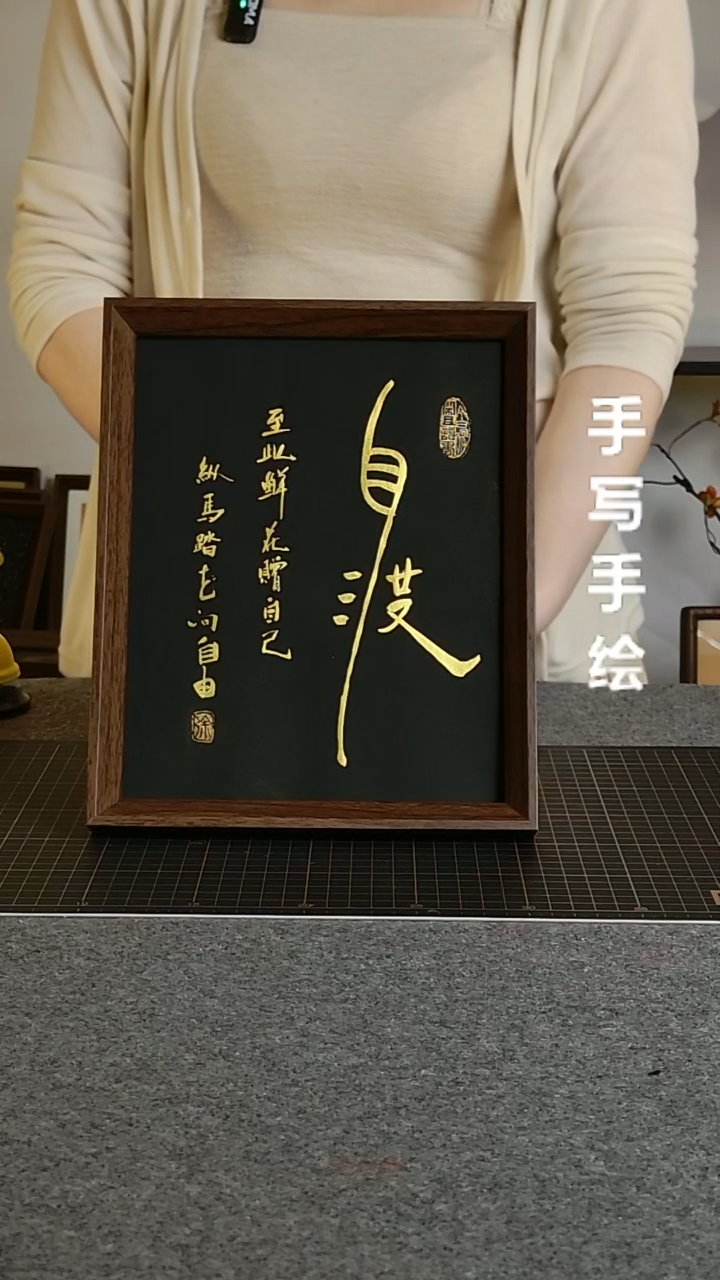 自渡
至此鮮花贈自己
纵馬踏花向自由
手写手绘